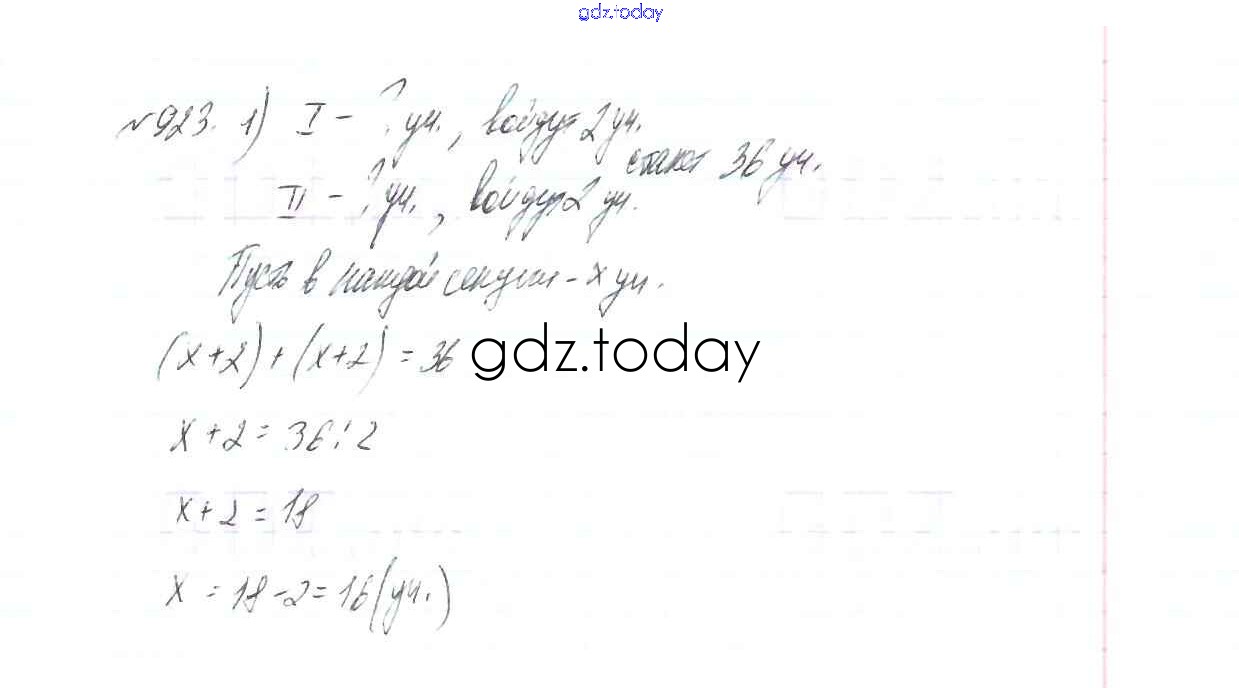 gdz.today
№923. 1) I - ? уч., войдут 2 уч.
станет 36 уч.
II - ? уч., войдут 2 уч.
Пусть в каждой секции - x уч.
(x+2)+(x+2) = 36
gdz.today
x+2 = 36:2
x+2 = 18
x = 18-2 = 16 (уч.)